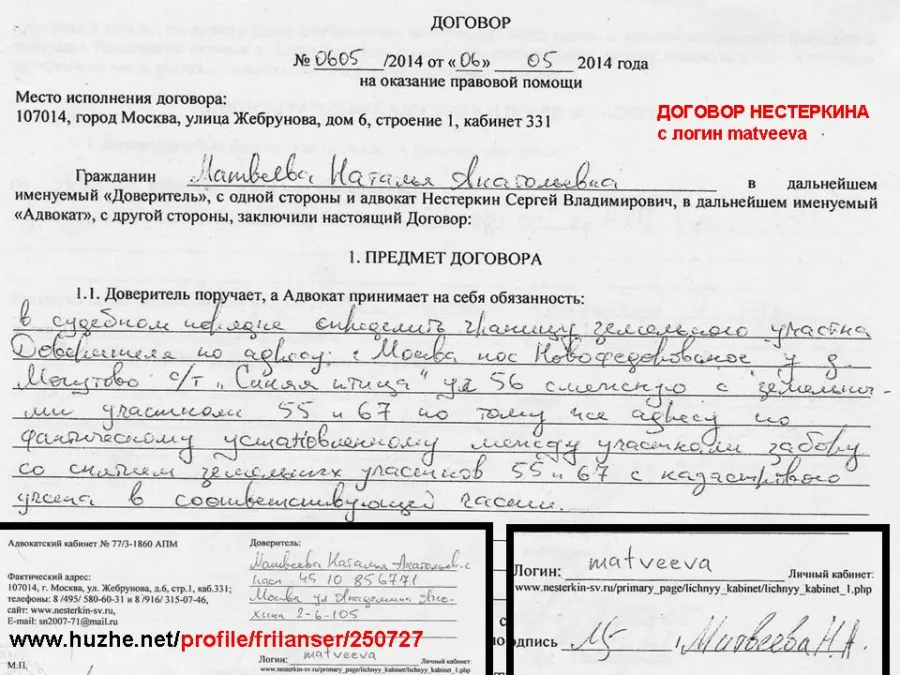 ДОГОВОР
№ 0605 /2014 от «06» 05 2014 года
на оказание правовой помощи
Место исполнения договора:
107014, город Москва, улица Жебрунова, дом 6, строение 1, кабинет 331
ДОГОВОР НЕСТЕРКИНА
с логин matveeva
Гражданин Матвеева Наталья Анатольевна в дальнейшем
именуемый «Доверитель», с одной стороны и адвокат Нестеркин Сергей Владимирович, в дальнейшем именуемый
«Адвокат», с другой стороны, заключили настоящий Договор:
1. ПРЕДМЕТ ДОГОВОРА
1.1. Доверитель поручает, а Адвокат принимает на себя обязанность:
в судебном порядке определить границу земельного участка
Доверителя по адресу: г Москва пос Новофедоровское у д.
Могутово с/т „Синяя птица" уч 56 смежную с земельны-
ми участками 55 и 67 по тому же адресу по
фактическому установленному между участками забору
со снятием земельных участков 55 и 67 с кадастрового
учета в соответствующей части.
Адвокатский кабинет № 77/3-1860 АПМ
Фактический адрес:
107014, г. Москва, ул. Жебрунова, д.6, стр.1, каб.331;
телефоны: 8 /495/ 580-60-31 и 8 /916/ 315-07-46,
сайт: www.nesterkin-sv.ru,
E-mail: sn2007-71@mail.ru
М.П.
Доверитель:
Матвеева Наталья Анатольевна
45 10 856771
Москва ул Академика
2-6-105
www.huzhe.net/profile/frilanser/250727
Логин: matveeva Личный кабинет:
www.nesterkin-sv.ru/primary_page/lichnyy_kabinet/lichnyy_kabinet_1.php
Логин: matveeva Личный кабинет:
www.nesterkin-sv.ru/primary_page/lichnyy_kabinet/lichnyy_kabinet_1.php
одпись Матвеева Н.А.